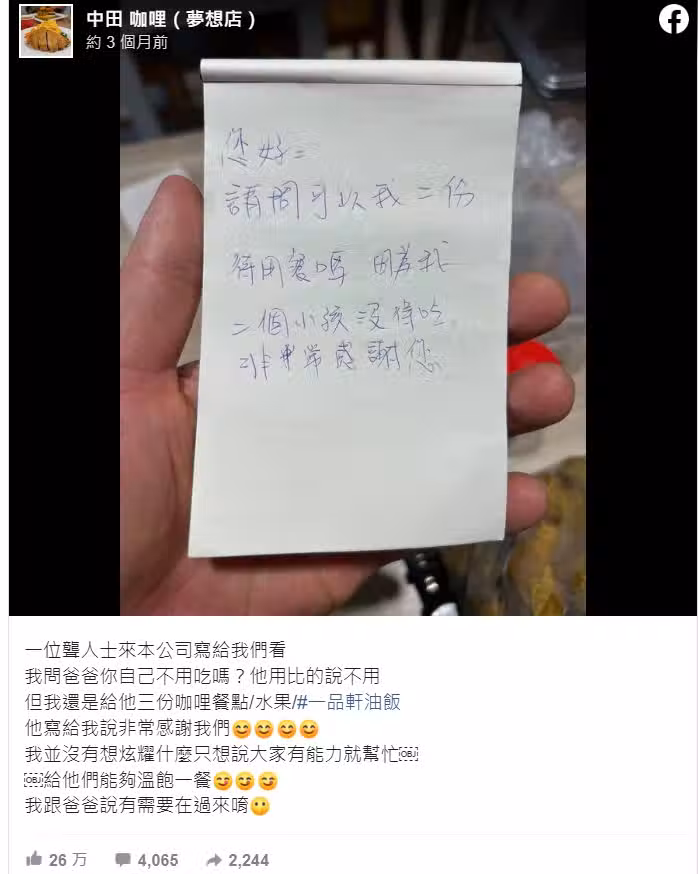 中田 咖哩（夢想店）
約 3 個月前
您好=
請問可以我二份
待用餐嗎 因為我
二個小孩沒得吃
非常感謝您
一位聾人士來本公司寫給我們看
我問爸爸你自己不用吃嗎？他用比的說不用
但我還是給他三份咖哩餐點/水果/#一品軒油飯
他寫給我說非常感謝我們😊😊😊😊
我並沒有想炫耀什麼只想說大家有能力就幫忙￼
￼給他們能夠溫飽一餐😊😊😊
我跟爸爸說有需要在過來唷😗
26 万
4,065
2,244